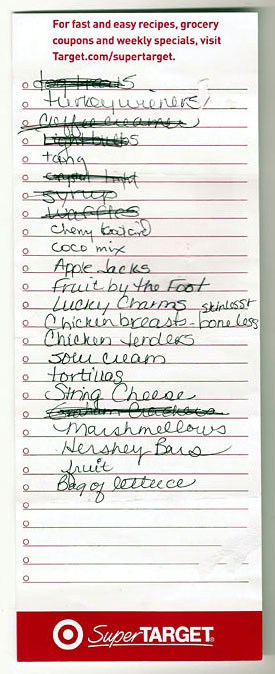 For fast and easy recipes, grocery
coupons and weekly specials, visit
Target.com/supertarget.
turkey wieners
Coffee creamer
Light bulbs
tang
syrup
waffles
Cherry Koolaid
coco mix
Apple Jacks
Fruit by the Foot
Lucky Charms skinless+
Chicken breast - boneless
Chicken tenders
sour cream
tortillas
String Cheese
Graham Crackers
Marshmellows
Hershey Bars
fruit
Bag of lettuce
SuperTARGET